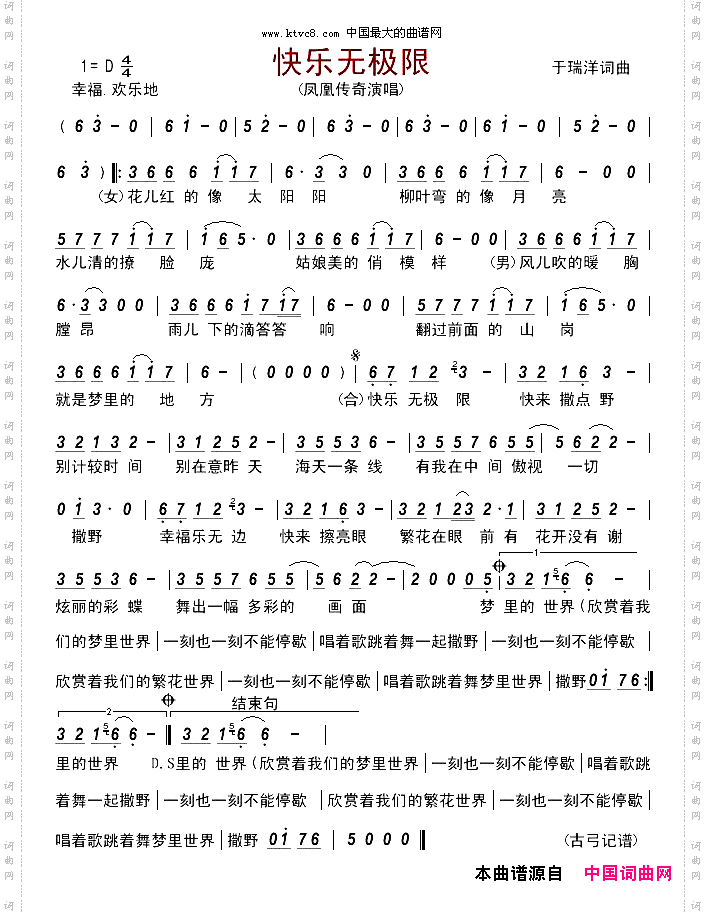 www.ktvc8.com 中国最大的曲谱网
1=D 4/4 快乐无极限 于瑞洋词曲
幸福.欢乐地 (凤凰传奇演唱)
( 6 3 - 0 | 6 1 - 0 | 5 2 - 0 | 6 3 - 0 | 6 3 - 0 | 6 1 - 0 | 5 2 - 0 |
6 3 ) ‖: 3 6 6 6 1 1 7 | 6 · 3 3 0 | 3 6 6 6 1 1 7 | 6 - 0 0 |
(女)花儿红 的 像 太 阳阳 柳叶弯 的 像 月 亮
5 7 7 7 1 1 7 | 1 6 5 · 0 | 3 6 6 6 1 1 7 | 6 - 0 0 | 3 6 6 6 1 1 7 |
水儿清的撩 脸 庞 姑娘美的 俏 模 样 (男)风儿吹的暖 胸
6 · 3 3 0 0 | 3 6 6 6 1 1 7 1 7 | 6 - 0 0 | 5 7 7 7 1 1 7 | 1 6 5 · 0 |
膛 昂 雨儿 下的滴答答 响 翻过前面 的 山 岗
3 6 6 6 6 1 1 7 | 6 - | ( 0 0 0 0 ) | 6 7 1 2 2 3 - | 3 2 1 6 3 - |
就是梦里的 地 方 (合)快乐 无极 限 快来 撒点 野
3 2 1 3 2 - | 3 1 2 5 2 - | 3 5 5 3 5 - | 3 5 5 7 6 5 5 | 5 6 2 2 - |
别计较时 间 别在意昨 天 海天一条 线 有我在中 间 傲视 一切
0 1 3 · 0 | 6 7 1 2 2 3 - | 3 2 1 6 3 - | 3 2 1 2 3 2 · 1 | 3 1 2 5 2 - |
撒野 幸福乐无 边 快来 擦亮眼 繁花在眼 前 有 花开没有 谢
1
3 5 5 3 5 - | 3 5 5 7 6 5 5 | 5 6 2 2 - | 2 0 0 0 5 | 3 2 1 5 6 6 - |
炫丽的彩 蝶 舞出一幅 多彩的 画面 梦 里的 世界(欣赏着我
们的梦里世界|一刻也一刻不能停歇|唱着歌跳着舞一起撒野|一刻也一刻不能停歇|
欣赏着我们的繁花世界|一刻也一刻不能停歇|唱着歌跳着舞梦里世界|撒野 0 1 7 6 :‖
2 结束句
3 2 1 5 6 6 - ‖ 3 2 1 5 6 6 - |
里的世界 D.S里的 世界(欣赏着我们的梦里世界|一刻也一刻不能停歇|唱着歌跳
着舞一起撒野|一刻也一刻不能停歇 |欣赏着我们的繁花世界|一刻也一刻不能停歇|
唱着歌跳着舞梦里世界|撒野 0 1 7 6 | 5 0 0 0 ‖ (古弓记谱)
本曲谱源自 中国词曲网
词曲网